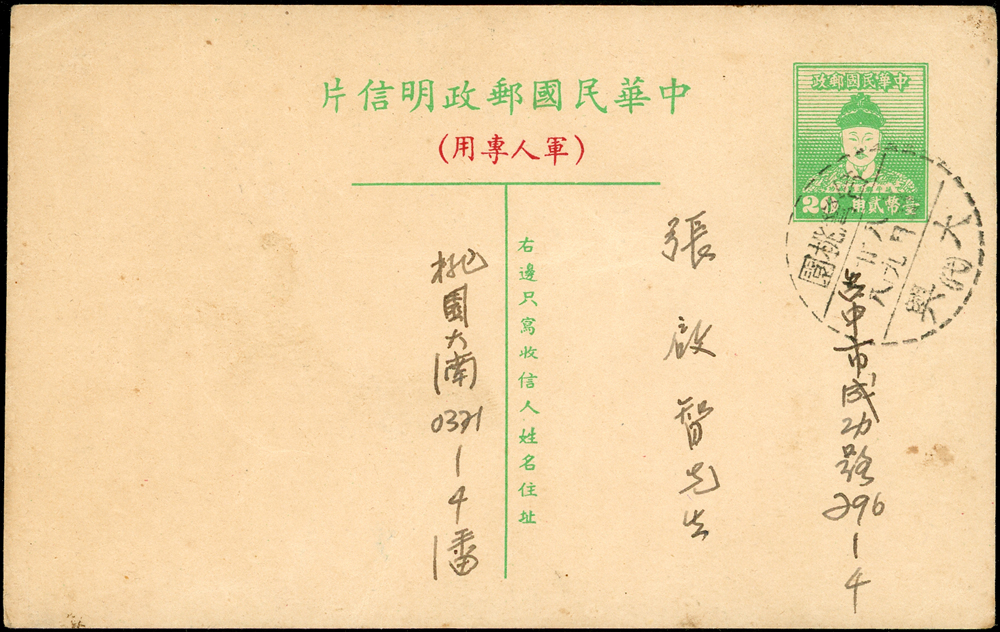 中華民國郵政明信片
(軍人專用)
中華民國郵政
臺幣貳角
20
右邊只寫收信人姓名住址
台中市成功路296-4
張啟智先生
桃園大湳0321-4潘
大湳